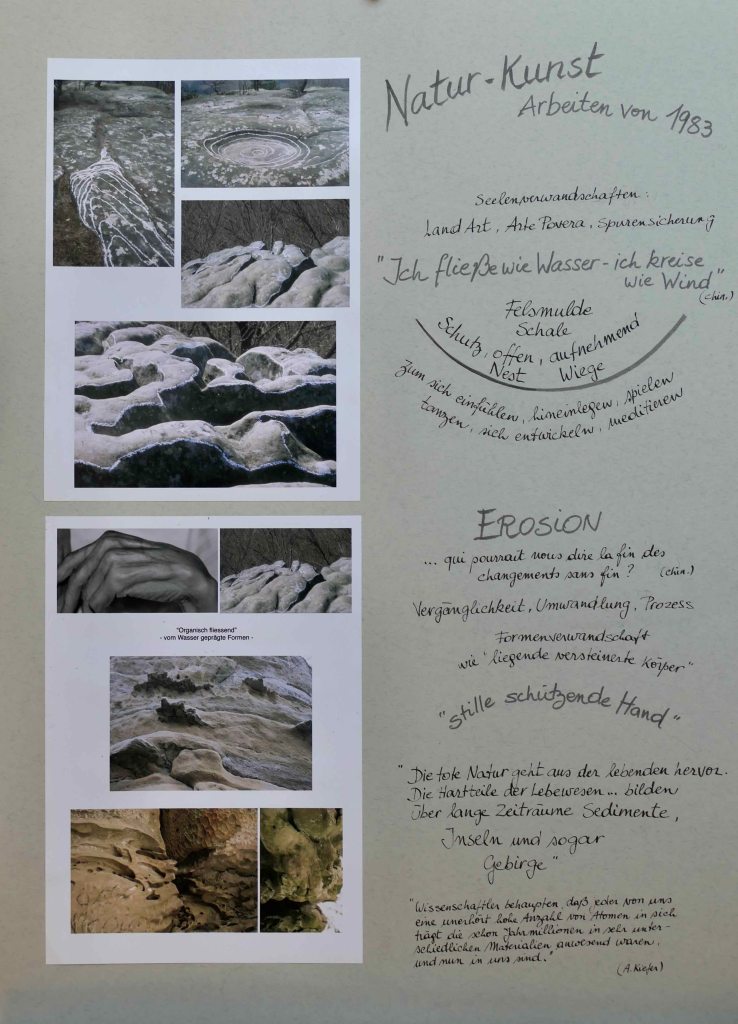 Natur-Kunst
Arbeiten von 1983
Seelenverwandschaften:
Land Art, Arte Povera, Spurensicherung
"Ich fließe wie Wasser - ich kreise
wie Wind"
(chin.)
Felsmulde
Schale
Schutz, offen, aufnehmend
Nest Wiege
Zum sich einfühlen, hineinlegen, spielen
tanzen, sich entwickeln, meditieren
EROSION
... qui pourrait nous dire la fin des
changements sans fin? (chin.)
Vergänglichkeit, Umwandlung, Prozess
Formenverwandschaft
wie "liegende versteinerte Körper"
"stille schützende Hand"
"Organisch fliessend"
- vom Wasser geprägte Formen -
"Die tote Natur geht aus der lebenden hervor.
Die Hartteile der Lebewesen... bilden
über lange Zeiträume Sedimente,
Inseln und sogar
Gebirge"
"Wissenschaftler behaupten, daß jeder von uns
eine unerhört hohe Anzahl von Atomen in sich
trägt die schon Jahrmillionen in sehr unter-
schiedlichen Materialien anwesend waren,
und nun in uns sind."
(A. Kiefer)